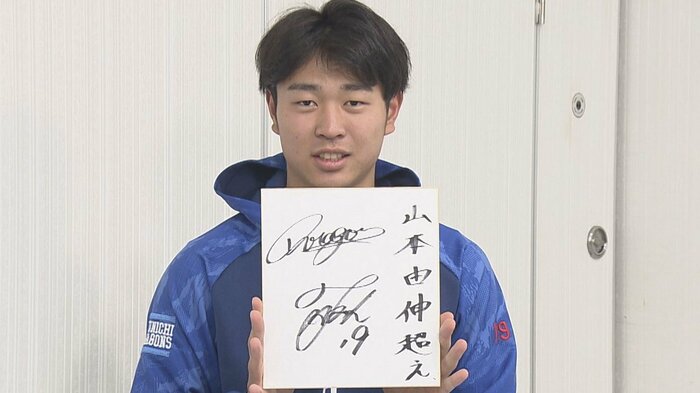 山本由伸超え.
Dragons
19
UNICHI
AGONS
19